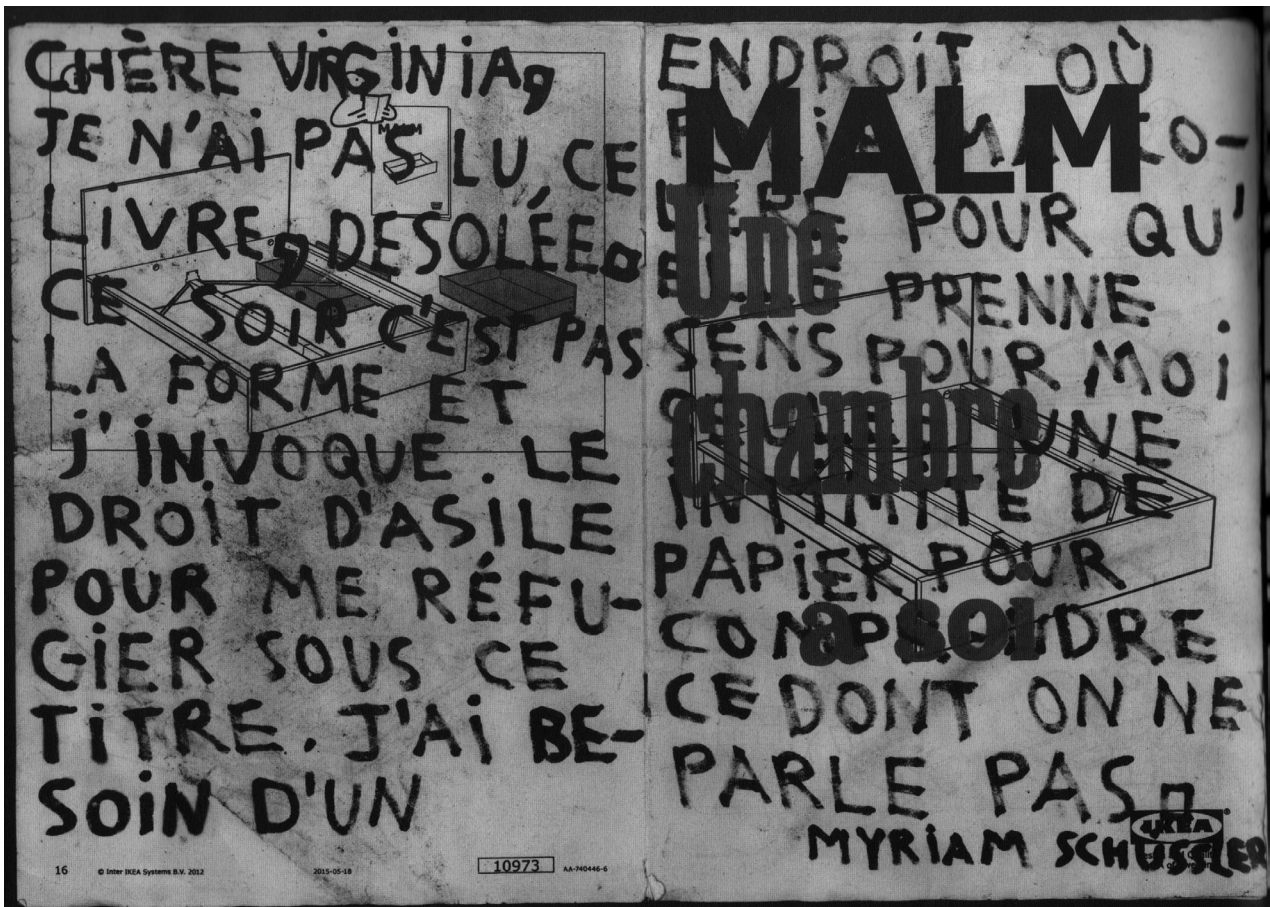 CHÈRE VIRGINIA,
JE N'AI PAS LU, CE
LIVRE, DESOLÉE.
CE SOIR C'EST PAS
LA FORME ET
J'INVOQUE . LE
DROIT D'ASILE
POUR ME RÉFU-
GIER SOUS CE
TITRE. J'AI BE-
SOIN D'UN
MALM
16
© Inter IKEA Systems B.V. 2012
2015-05-18
10973
AA-740446-6
ENDROIT OÙ
MA CO-
LÈRE POUR QU'
ELLE PRENNE
SENS POUR MOI
UNE
INTIMITÉ DE
PAPIER POUR
COMPRENDRE
CE DONT ON NE
PARLE PAS.
MYRIAM SCHUSSLER
MALM
Une
chambre
à soi
IKEA